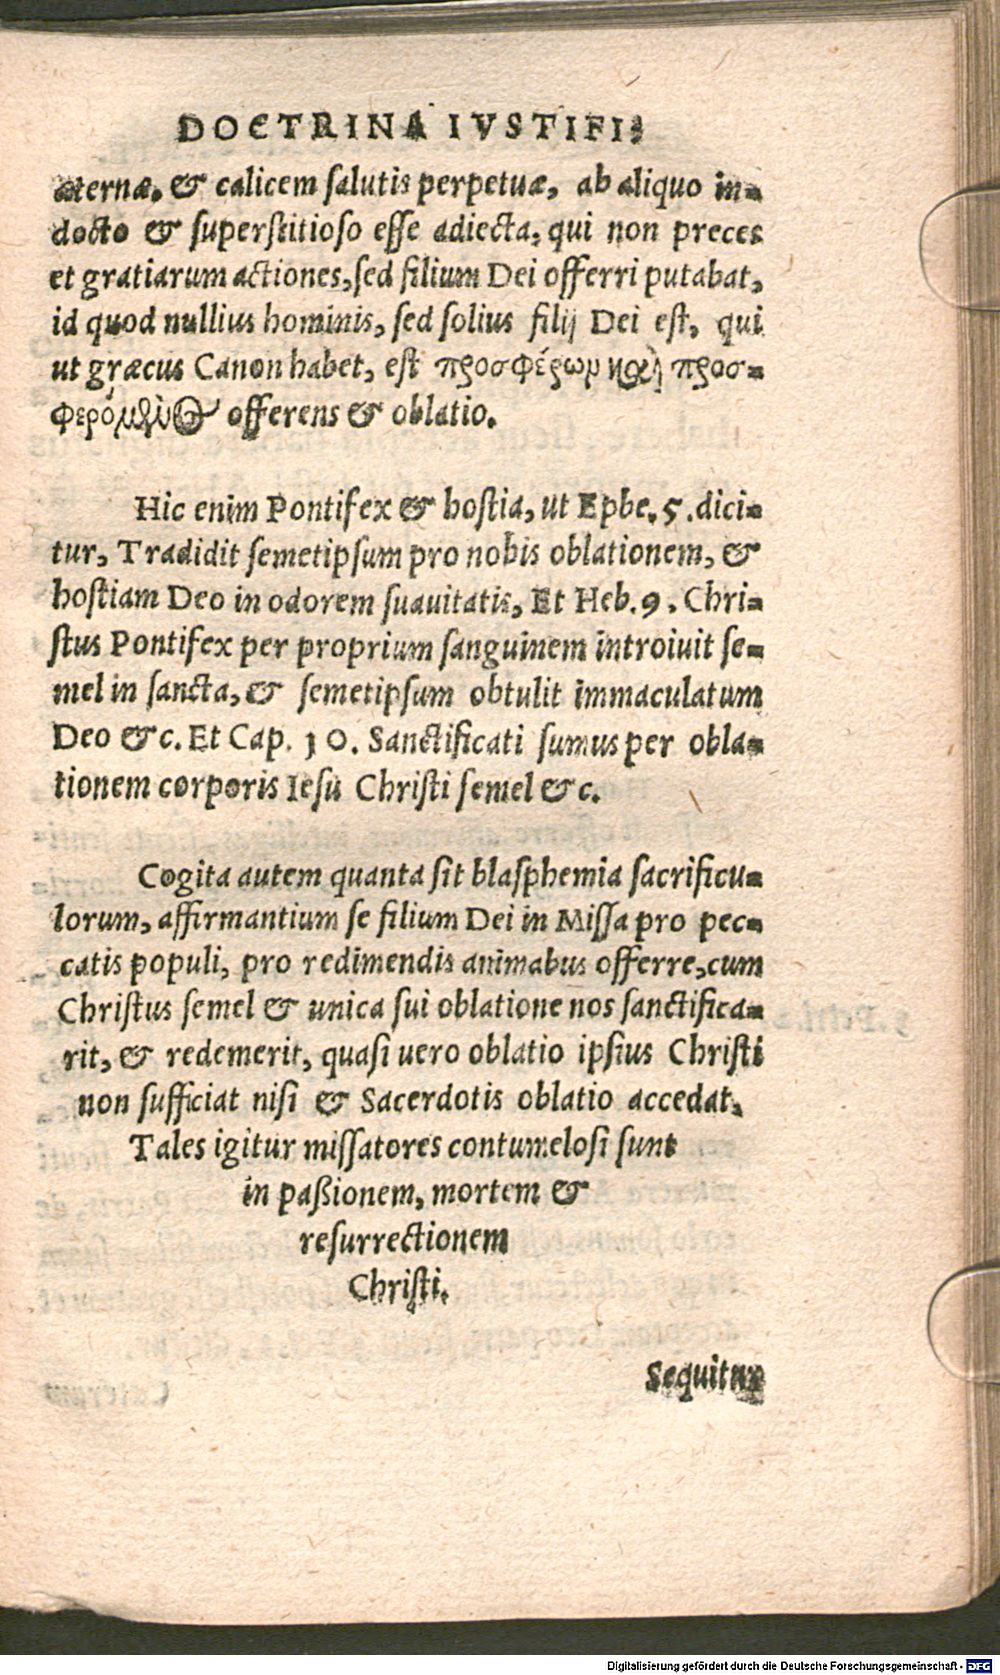 DOCTRINA IVSTIFI-
æternæ, & calicem salutis perpetuæ, ab aliquo in-
docto & superstitioso esse adiecta, qui non preces
et gratiarum actiones, sed filium Dei offerri putabat,
id quod nullius hominis, sed solius filij Dei est, qui
ut græcus Canon habet, est προσφέρων καὶ προσ-
φερόμενος offerens & oblatio.
Hic enim Pontifex & hostia, ut Ephe. 5. dici-
tur, Tradidit semetipsum pro nobis oblationem, &
hostiam Deo in odorem suauitatis, Et Heb. 9. Chri-
stus Pontifex per proprium sanguinem introiuit se-
mel in sancta, & semetipsum obtulit immaculatum
Deo &c. Et Cap. 10. Sanctificati sumus per obla-
tionem corporis Iesu Christi semel &c.
Cogita autem quanta sit blasphemia sacrificu-
lorum, affirmantium se filium Dei in Missa pro pec-
catis populi, pro redimendis animabus offerre, cum
Christus semel & unica sui oblatione nos sanctifica-
rit, & redemerit, quasi uero oblatio ipsius Christi
non sufficiat nisi & Sacerdotis oblatio accedat.
Tales igitur missatores contumelosi sunt
in paßionem, mortem &
resurrectionem
Christi.
Sequitur
Digitalisierung gefördert durch die Deutsche Forschungsgemeinschaft - DFG